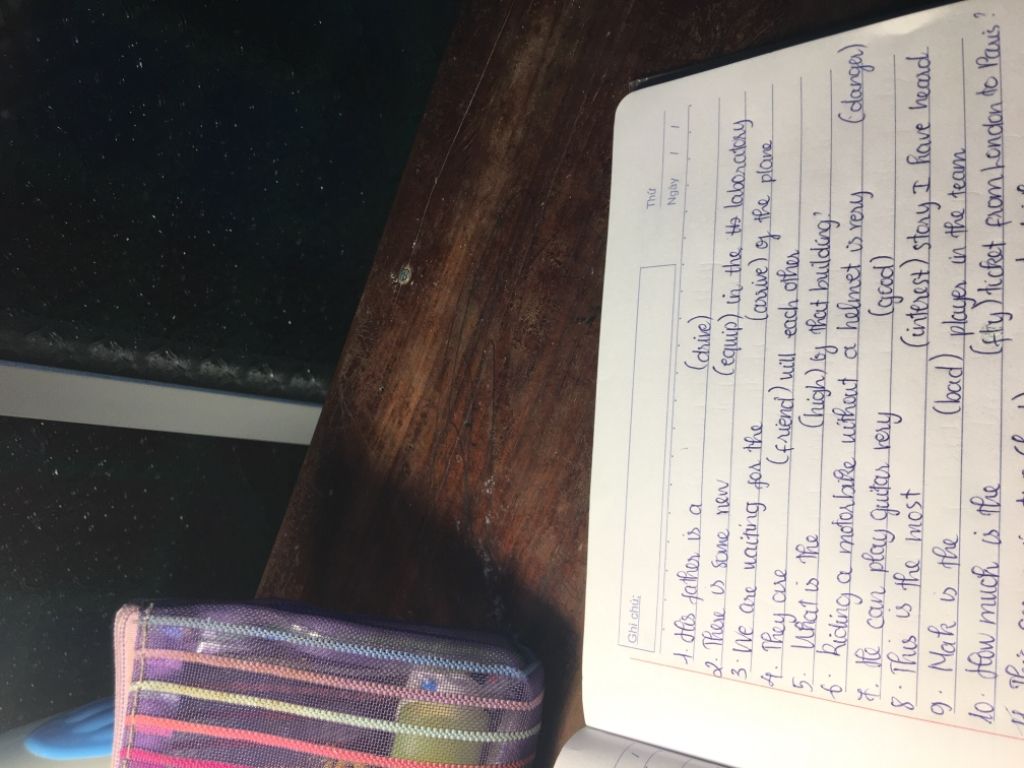 Thứ
Ngày / /
Ghi chú:
1. His father is a (drive)
2. There is some new (equip) in the laboratory
3. We are waiting for the (arrive) of the plane
4. They are (friend) will each other
5. What is the (high) by that building'
6. Riding a motorbike without a helmet is very (danger)
7. He can play guitar very (good)
8. This is the most (interest) story I have heard
9. Mark is the (bad) player in the team
10. How much is the (fly) ticket from London to Paris?
11. This